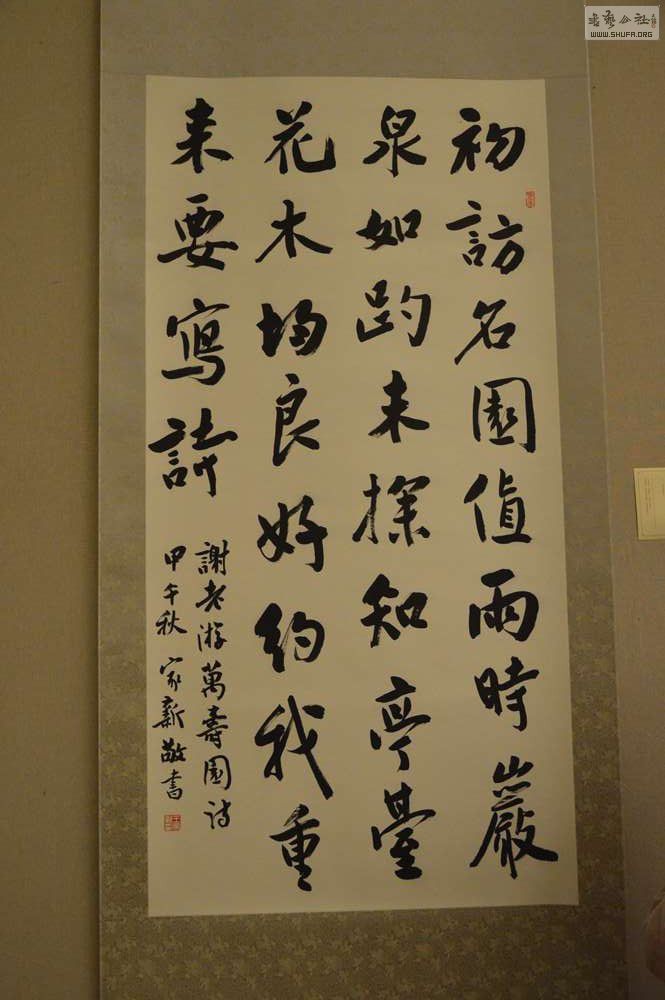 初訪名園值雨時巖
泉如趵未探知亭臺
花木均良好約我重
来要寫詩
謝老游萬壽園詩
甲午秋 家新敬書
WWW.SHUFA.ORG